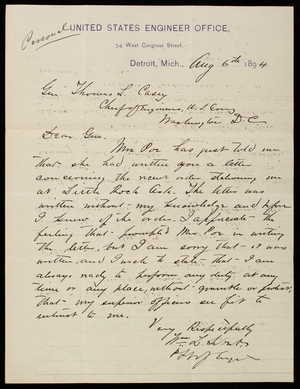 Personal
UNITED STATES ENGINEER OFFICE,
34 West Congress Street,
Detroit, Mich., Aug 6th 1894
Gen Thomas L. Casey
Chief of Engineers, U.S. Army
Washington D.C.
Dear Gen.
Mrs Poe has just told me
that she had written you a letter
concerning the recent order stationing me
at Little Rock Ark. The letter was
written without my knowledge and before
I knew of the order. I appreciate the
feeling that prompted Mrs. Poe in writing
the letter, but I am sorry that it was
written and I wish to state that I am
always ready to perform any duty at any
time or any place, without grumble or protest,
that my superior officers see fit to
entrust to me.
Very Respectfully
Wm. L.